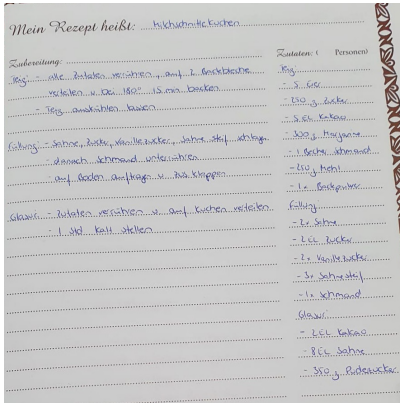 Mein Rezept heißt: Milchschnittekuchen
Zubereitung:
Teig: - alle Zutaten verrühren, auf 2 Backbleche
verteilen u. bei 180° 15 min backen
- Teig auskühlen lassen
Füllung - Sahne, Zucker, Vanillezucker, Sahne steif schlagen
- danach Schmand unterrühren
- auf Boden auftragen u. zus. klappen
Glasur - Zutaten verrühren u. auf Kuchen verteilen
- 1 Std kalt stellen
Zutaten: ( Personen)
Teig
- 5 Eier
- 250 g Zucker
- 5 EL Kakao
- 300 g Margarine
- 1 Becher Schmand
- 250 g Mehl
- 1x Backpulver
Füllung
- 2x Sahne
- 2 EL Zucker
- 2x Vanillezucker
- 3x Sahnesteif
- 1x Schmand
Glasur
- 2 EL Kakao
- 8 EL Sahne
- 350 g Puderzucker